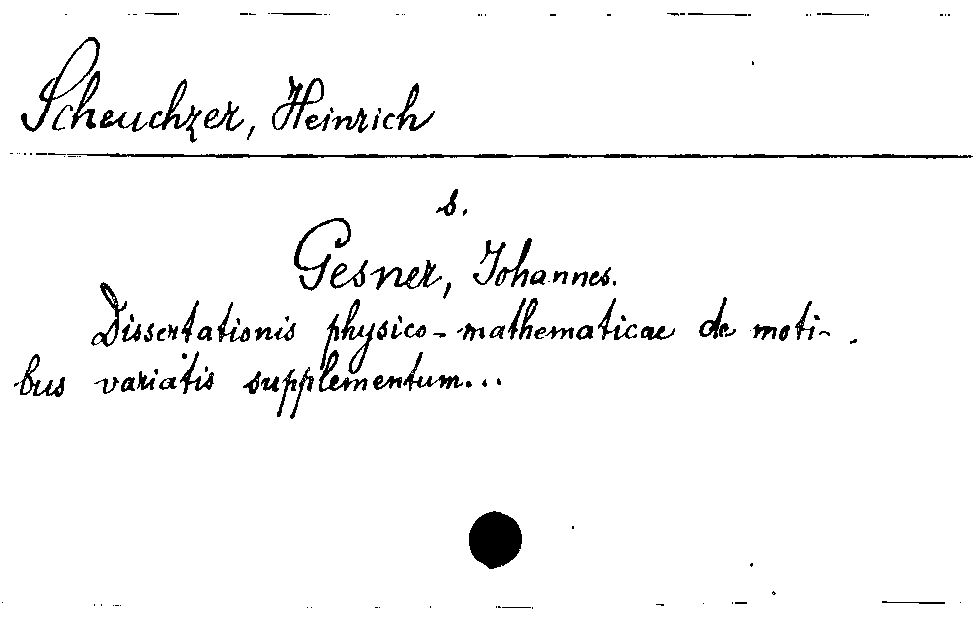 Scheuchzer, Heinrich
s.
Gesner, Johannes.
Dissertationis physico-mathematicae de moti-
bus variatis supplementum...